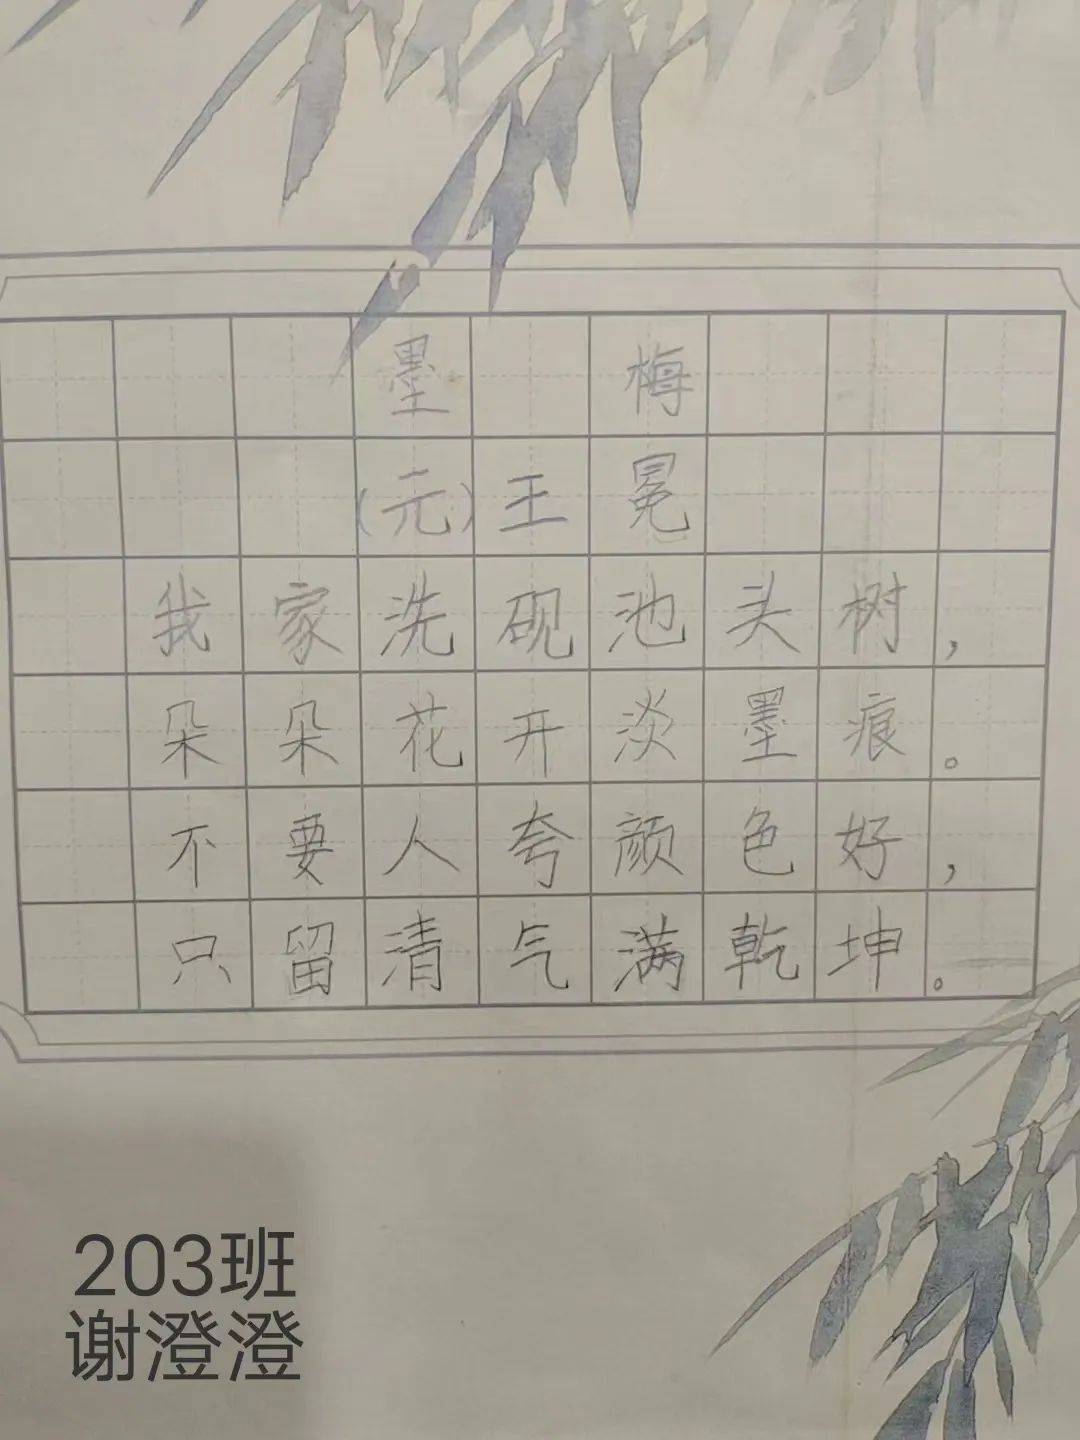 墨 梅
(元)王冕
我家洗砚池头树，
朵朵花开淡墨痕。
不要人夸颜色好，
只留清气满乾坤。
203班
谢澄澄